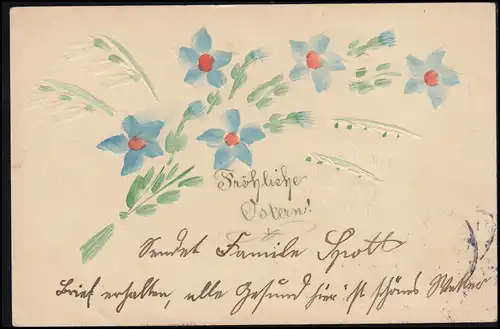 Fröhliche
Ostern!
Sendet Familie Spott
Brief erhalten, alle Gesund hier ist schöns Wetter